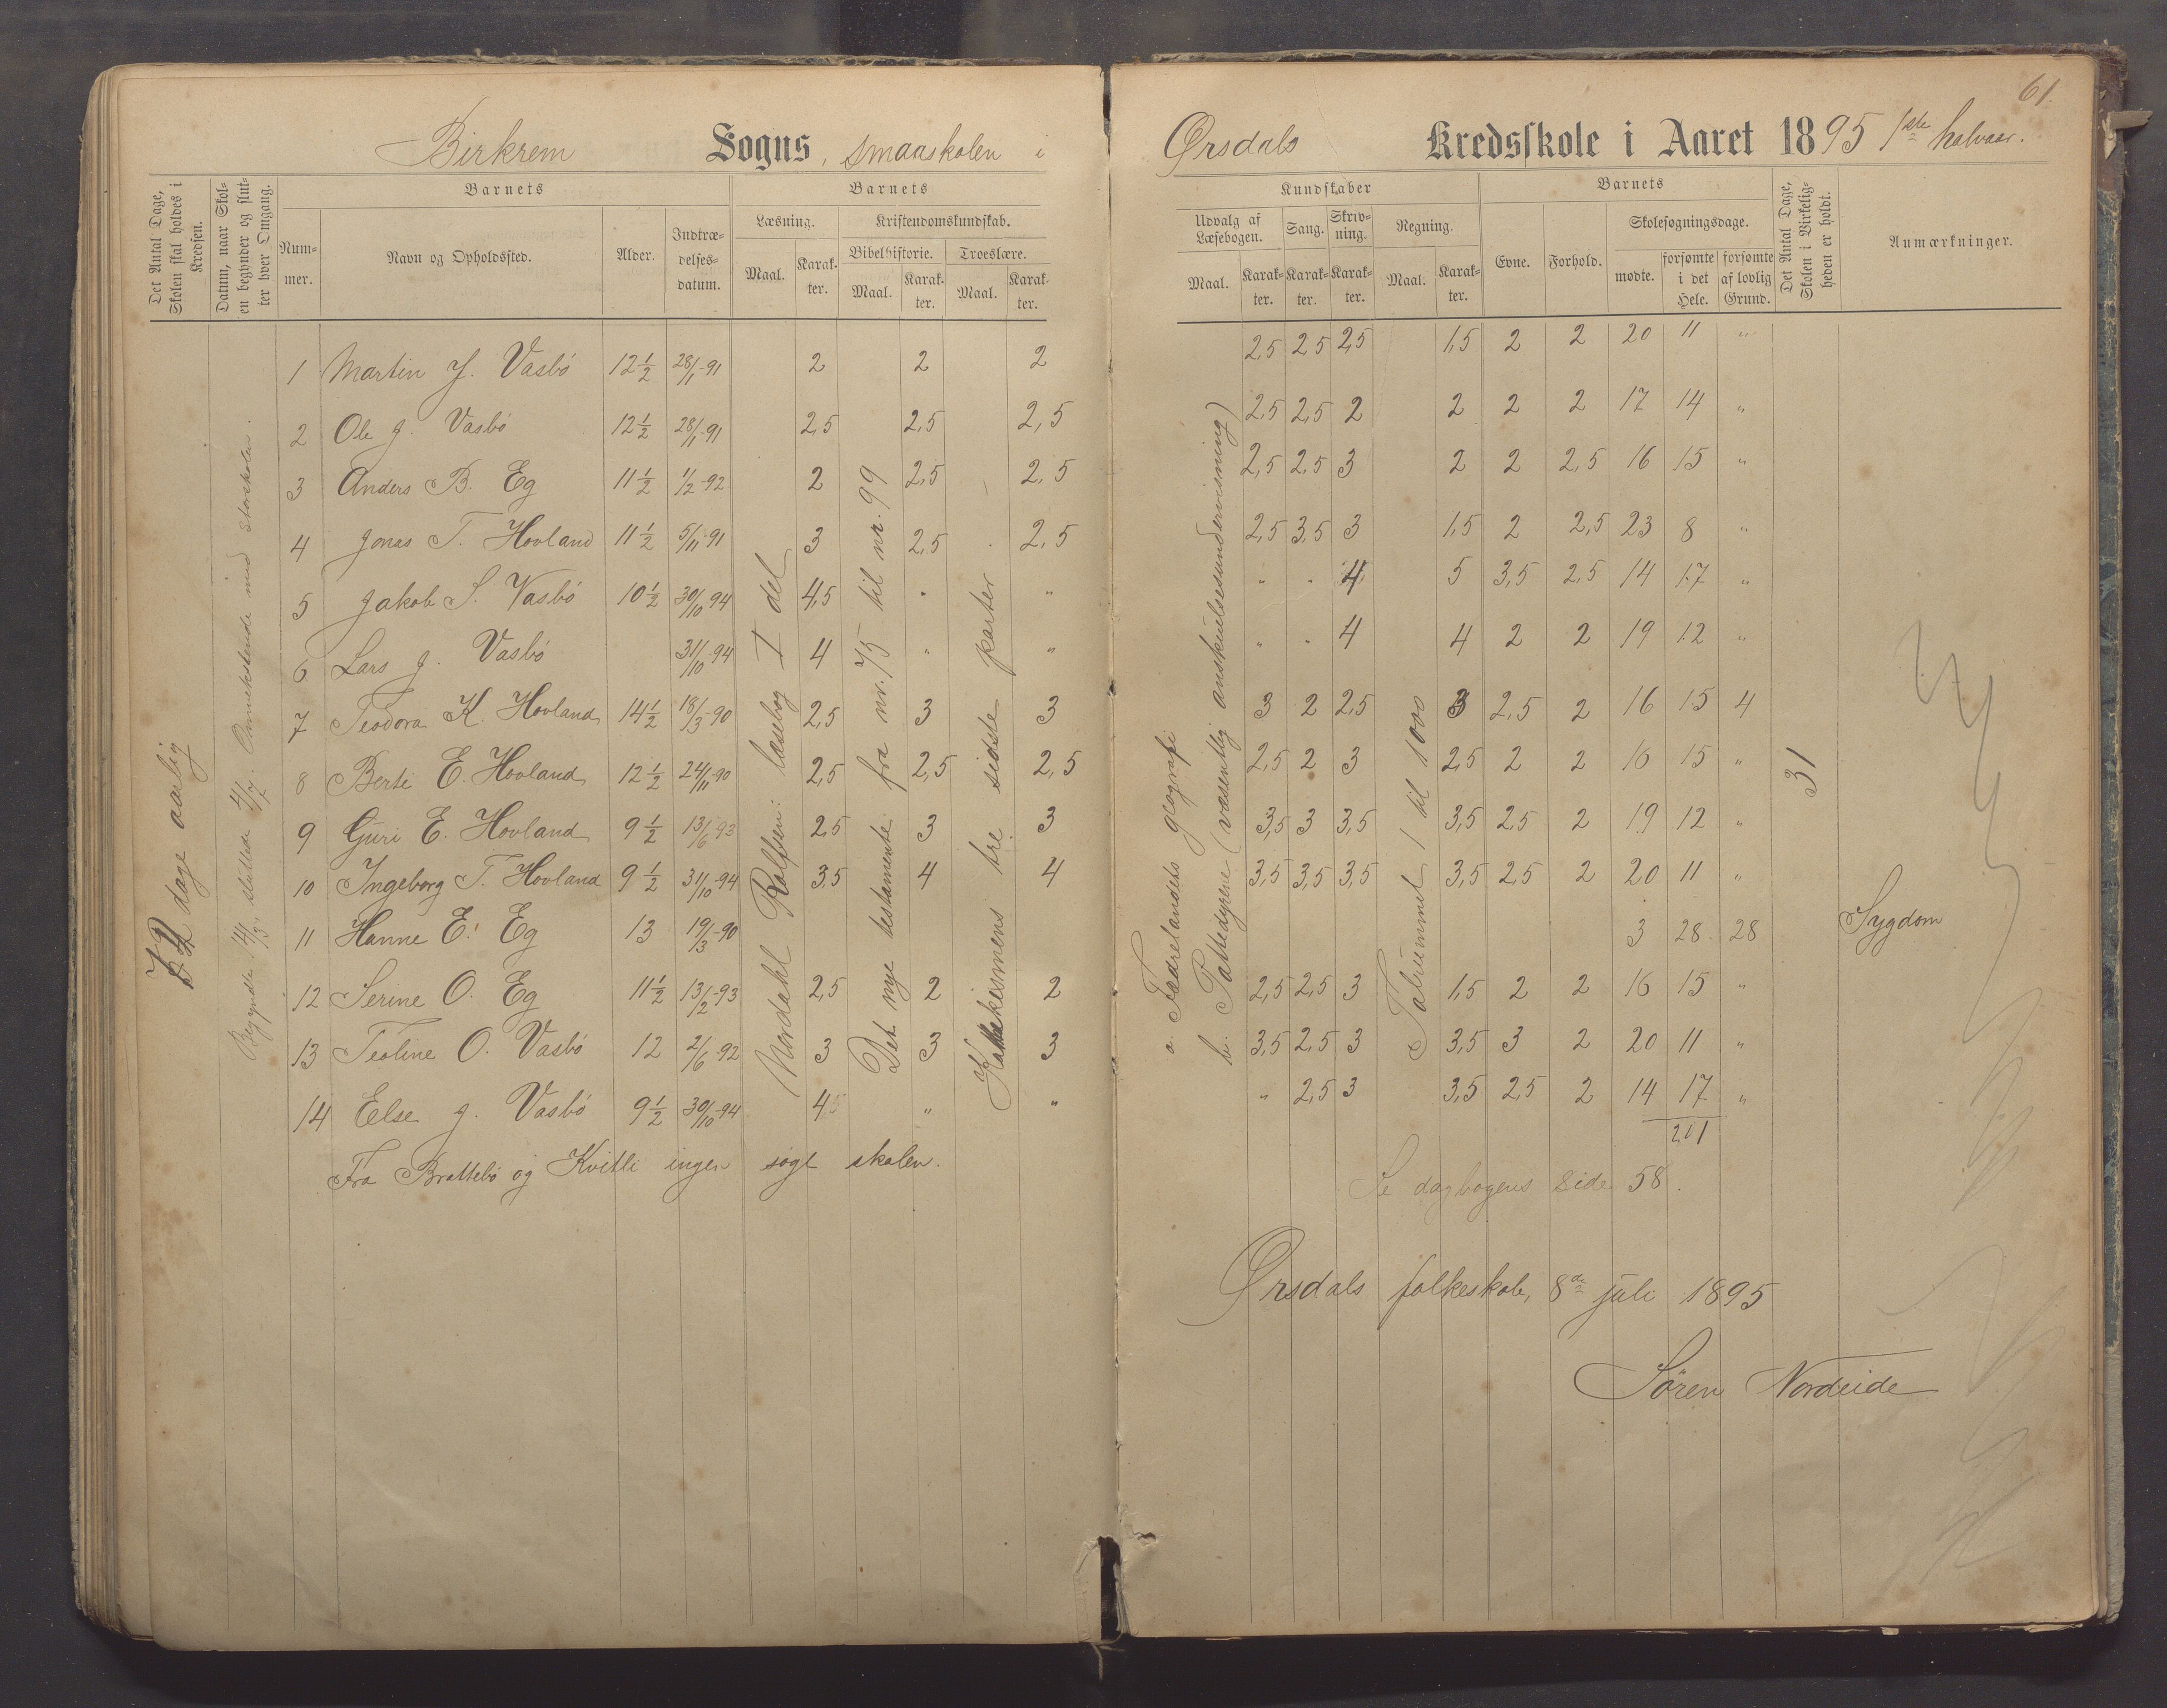 61.
Birkrem Sogns, smaaskolen i Ørsdals Kredsskole i Aaret 1895 1ste halvaar.
Det Antal Dage, Skolen skal holdes i Kredsen.
Datum, naar Skolen begynder og slutter hver Omgang.
Barnets
Nummer.
Navn og Opholdssted.
Alder.
Indtrædelsesdatum.
Barnets
Læsning.
Maal.
Karakter.
Kristendomskundskab.
Bibelhistorie.
Maal.
Karakter.
Troeslære.
Maal.
Karakter.
Kundskaber
Udvalg af Læsebogen.
Maal.
Karakter.
Sang.
Karakter.
Skrivning.
Karakter.
Regning.
Maal.
Karakter.
Barnets
Evne.
Forhold.
Skolesøgningsdage.
mødte.
forsømte i det Hele.
forsømte af lovlig Grund.
Det Antal Dage, Skolen i Virkeligheden er holdt.
Anmærkninger.
dage aarlig
Begyndte 14/3, sluttea 4/7. Annekstende med storskolen.
Nordahl Rolfsen: læsebog I del
Det nye testamente: fra nr. 75 til nr. 99
Katekesmens tre sidste parter
a. Fædrelandets geografi
b. Pattedyrene (væsentlig anskuelsesundervisning)
Talrummet 1 til 1000
31
1 Martin J. Vasbö 12½ 28/1-91 2 2 2 2,5 2,5 2,5 1,5 2 2 20 11 "
2 Ole J. Vasbö 12½ 28/1-91 2,5 2,5 2,5 2,5 2,5 2 2 2 2 17 14 "
3 Anders B. Eg 11½ 1/2-92 2 2,5 2,5 2,5 2,5 3 2 2 2,5 16 15 "
4 Jonas T. Hovland 11½ 5/11-91 3 2,5 2,5 2,5 3,5 3 1,5 2 2,5 23 8 "
5 Jakob S. Vasbö 10½ 30/10-94 4,5 " " " " 4 5 3,5 2,5 14 17 "
6 Lars J. Vasbö 31/10-94 4 " " " " 4 4 2 2 19 12 "
7 Teodora K. Hovland 14½ 18/3-90 2,5 3 3 3 2 2,5 3 2,5 2 16 15 4
8 Berte E. Hovland 12½ 24/11-90 2,5 2,5 2,5 2,5 2 3 2,5 2 2 16 15 "
9 Guri E. Hovland 9½ 13/6-93 2,5 3 3 3,5 3 3,5 3,5 2,5 2 19 12 "
10 Ingeborg T. Hovland 9½ 31/10-94 3,5 4 4 3,5 3,5 3,5 3,5 2,5 2 20 11 "
11 Hanne E. Eg 13 19/3-90 3 28 28 Sygdom
12 Serine O. Eg 11½ 13/2-93 2,5 2 2 2,5 2,5 3 1,5 2 2 16 15 "
13 Teoline O. Vasbö 12 2/6-92 3 3 3 3,5 2,5 3 3,5 3 2 20 11 "
14 Else J. Vasbö 9½ 30/10-94 4,5 " " " 2,5 3 3,5 2,5 2 14 17 "
201
Fra Brattebö og Kvitli ingen sögt skolen.
Se dagbogens side 58.
Ørsdals folkeskole, 8de juli 1895
Sören Nordeide